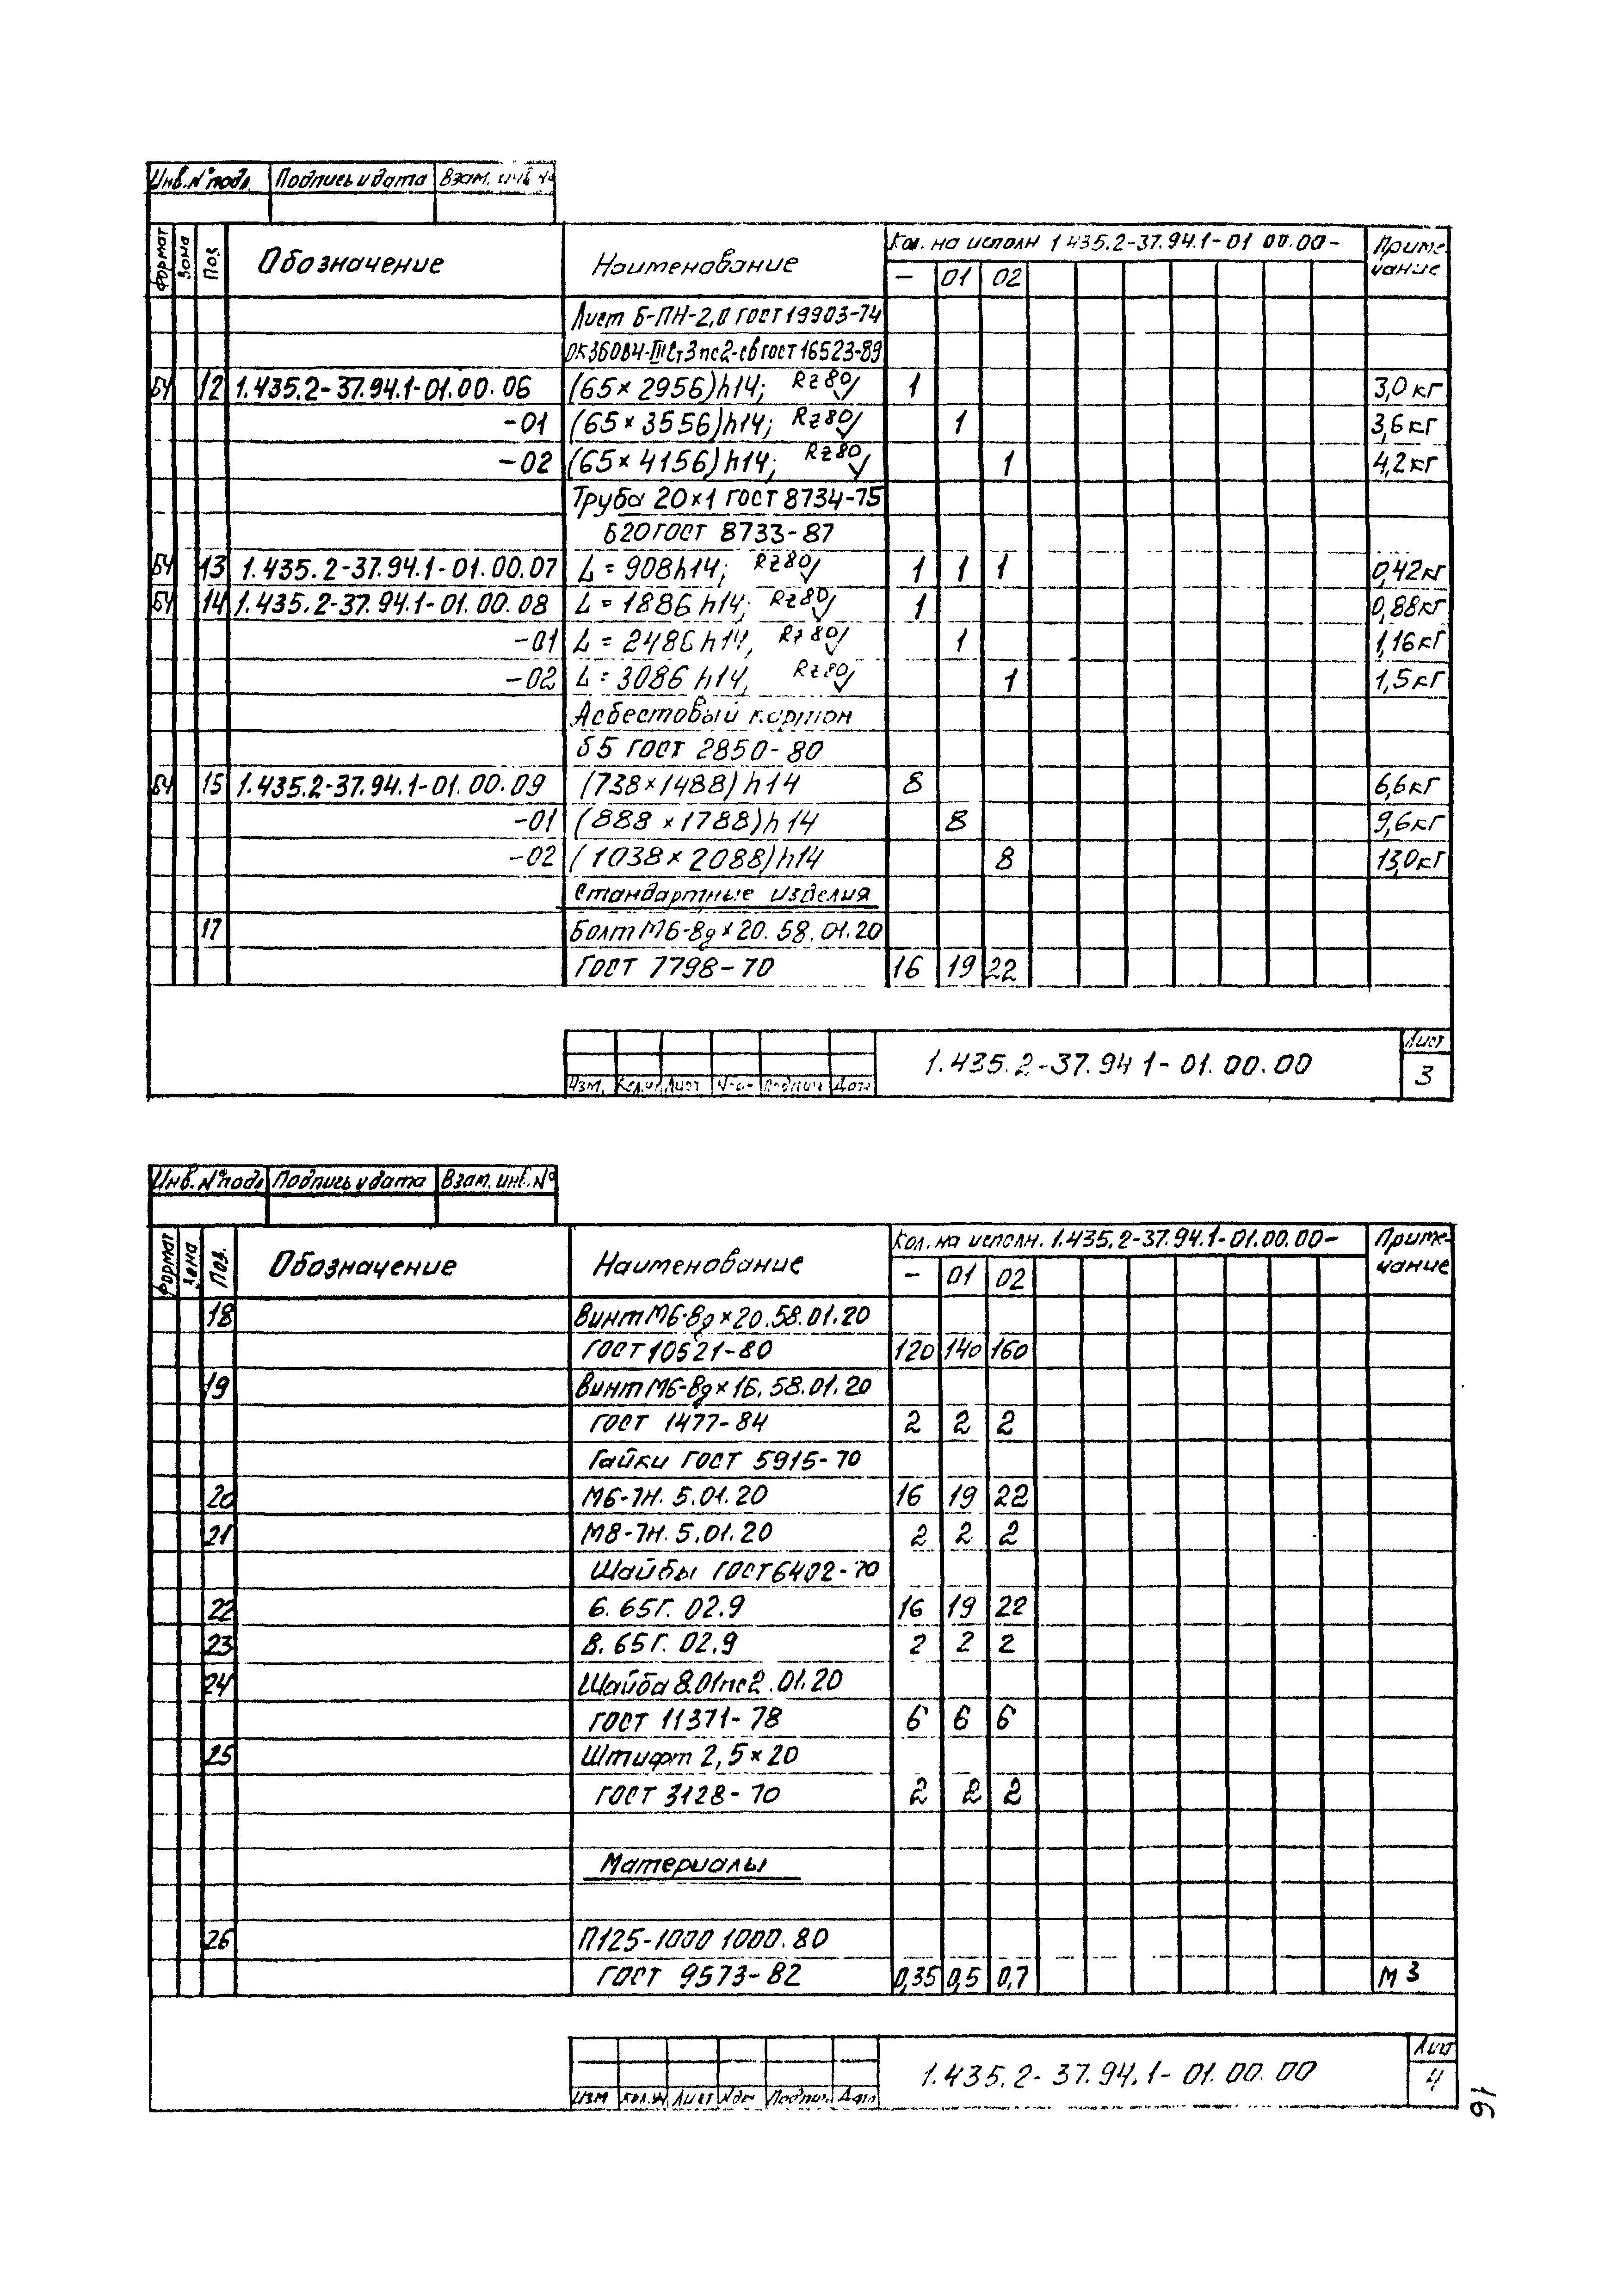 Инв. № подл. Подпись и дата Взам. инв. №
Формат Зона Поз. Обозначение Наименование Кол. на исполн. 1.435.2-37.94.1-01.00.00- Примечание
– 01 02
Лист Б-ПН-2,0 ГОСТ 19903-74
ОК360В4-III Ст3пс2-св ГОСТ 16523-89
БЧ 12 1.435.2-37.94.1-01.00.06 (65×2956)h14; Rz80 1 3,0 кг
-01 (65×3556)h14; Rz80 1 3,6 кг
-02 (65×4156)h14; Rz80 1 4,2 кг
Труба 20×1 ГОСТ 8734-75
Б20 ГОСТ 8733-87
БЧ 13 1.435.2-37.94.1-01.00.07 L = 908h14; Rz80 1 1 1 0,42 кг
БЧ 14 1.435.2-37.94.1-01.00.08 L = 1886 h14; Rz80 1 0,88 кг
-01 L = 2486 h14; Rz80 1 1,16 кг
-02 L = 3086 h14; Rz80 1 1,5 кг
Асбестовый картон
δ5 ГОСТ 2850-80
БЧ 15 1.435.2-37.94.1-01.00.09 (738×1488)h14 8 6,6 кг
-01 (888×1788)h14 8 9,6 кг
-02 (1038×2088)h14 8 13,0 кг
Стандартные изделия
17 Болт М6-8g×20.58.01.20
ГОСТ 7798-70 16 19 22
Изм. Кол.уч Лист №док Подпись Дата 1.435.2-37.94.1-01.00.00 Лист
3
Инв. № подл. Подпись и дата Взам. инв. №
Формат Зона Поз. Обозначение Наименование Кол. на исполн. 1.435.2-37.94.1-01.00.00- Примечание
– 01 02
18 Винт М6-8g×20.58.01.20
ГОСТ 10621-80 120 140 160
19 Винт М6-8g×16.58.01.20
ГОСТ 1477-84 2 2 2
Гайки ГОСТ 5915-70
20 М6-7Н.5.01.20 16 19 22
21 М8-7Н.5.01.20 2 2 2
Шайбы ГОСТ 6402-70
22 6.65Г.02.9 16 19 22
23 8.65Г.02.9 2 2 2
24 Шайба 8.01пс2.01.20
ГОСТ 11371-78 6 6 6
25 Штифт 2,5×20
ГОСТ 3128-70 2 2 2
Материалы
26 П125-1000 1000.80
ГОСТ 9573-82 0,35 0,5 0,7 м3
Изм Кол.уч Лист №док Подпись Дата 1.435.2-37.94.1-01.00.00 Лист
4
16